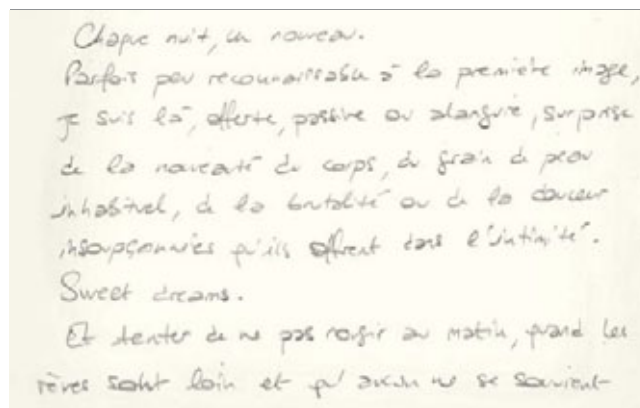 Chaque nuit, un nouveau.
Parfois peu reconnaissable à la première image,
je suis là, offerte, passive ou alanguie, surprise
de la nouveauté du corps, du grain de peau
inhabituel, de la brutalité ou de la douceur
insoupçonnées qu'ils offrent dans l'intimité.
Sweet dreams.
Et tenter de ne pas rougir au matin, quand les
rêves sont loin et qu'aucun ne se souvient